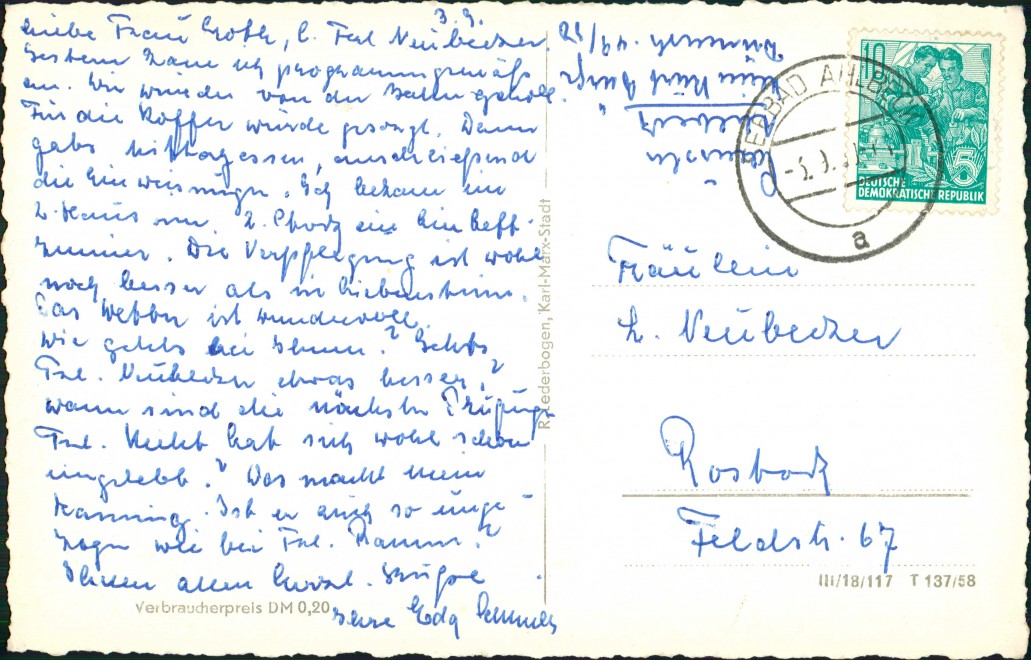 3.9.
Liebe Frau Groth, l. Frl Neubecker,
Gestern kam ich programmgemäß
an. Wir wurden von der Bahn geholt.
Für die Koffer wurde gesorgt. Dann
gabs Mittagessen, anschließend
die Einweisungen. Ich bekam im
2. Haus ein
Zimmer. Die Verpflegung ist wohl
noch besser als in Liebenstein.
Das Wetter ist wundervoll.
Wie gehts bei Ihnen? Gehts
Frl. Neubecker etwas besser?
wann sind die nächsten
Frl. hat sich wohl schon
eingelebt? Was macht mein
Ist er auch so unge-
zogen wie bei Frl. Ramm?
Ihnen allen herzl. Grüße
Ihre
Verbraucherpreis DM 0,20
R. Lederbogen, Karl-Marx-Stadt
SEEBAD AHLBECK
a
10
5
DEUTSCHE
DEMOKRATISCHE REPUBLIK
Fräulein
L. Neubecker
Rostock
Feldstr. 67
III/18/117 T 137/58